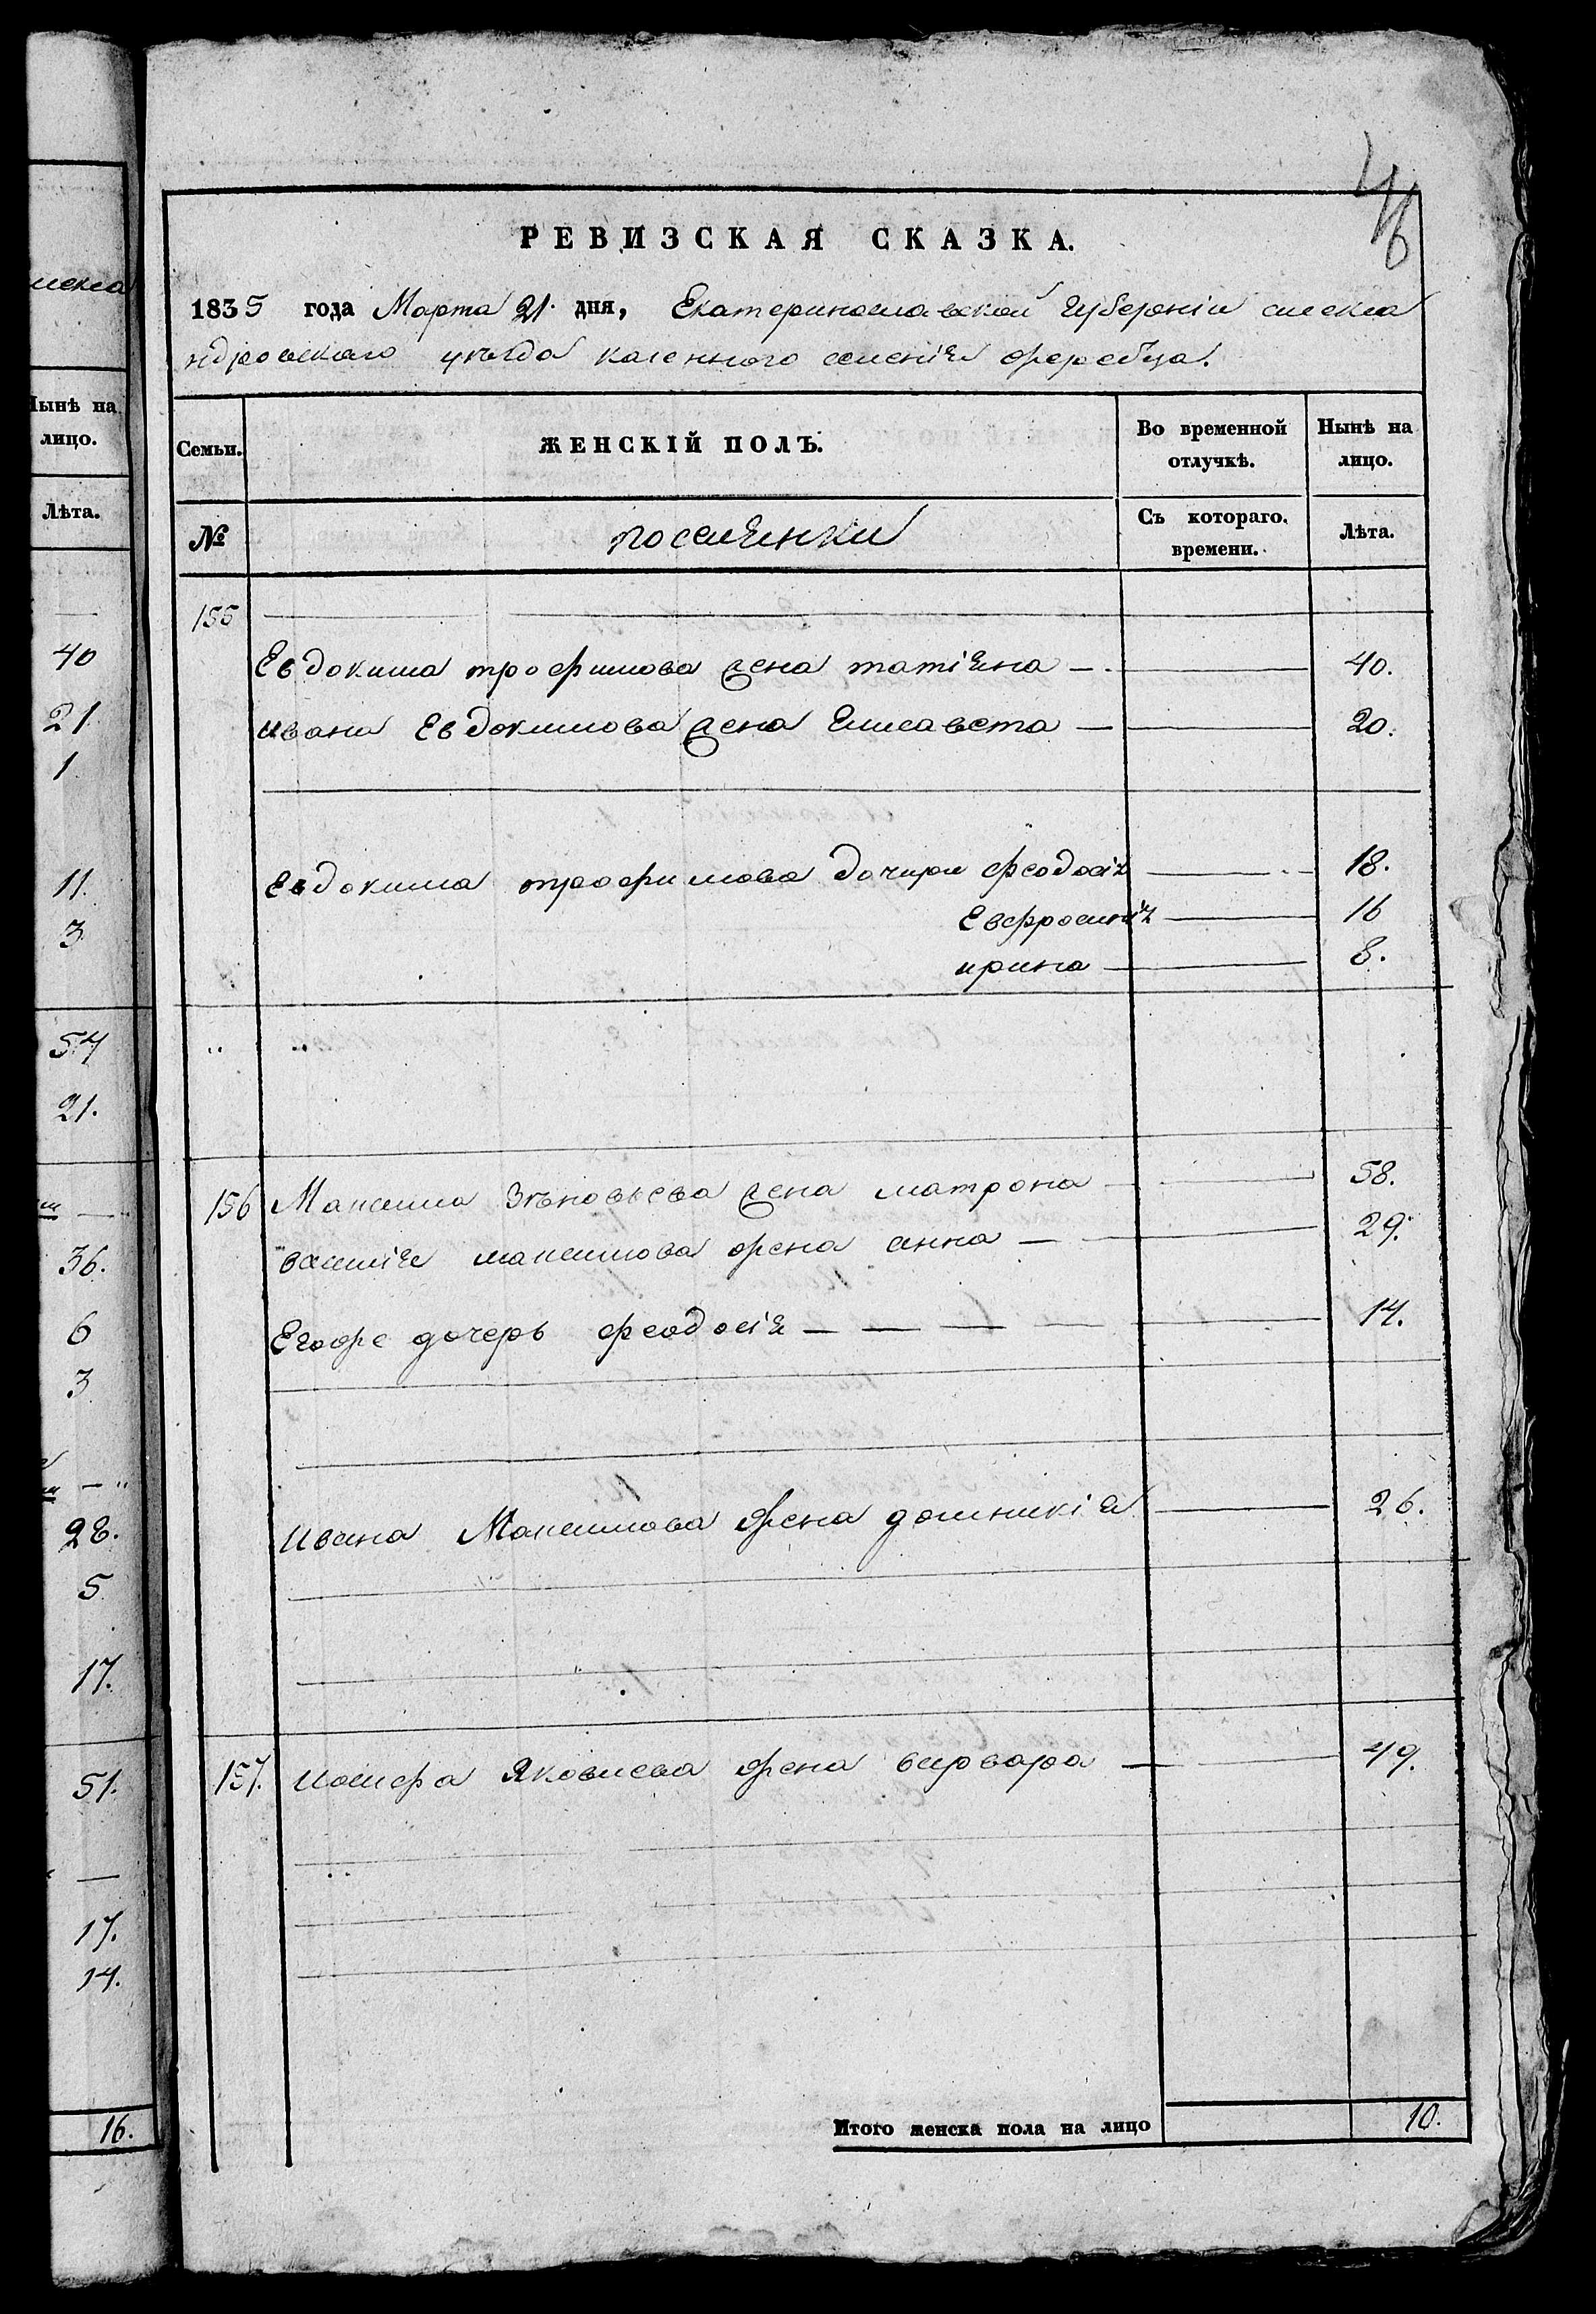 мекса
Нынѣ на
лицо.
Лѣта.
40
21.
1.
11.
3
54
21.
36.
6
3
28.
5
17.
51.
17.
14.
16.
46
РЕВИЗСКАЯ СКАЗКА.
1835 года Марта 21. дня, Екатеринославской губерніи алекса
ндровскаго уѣзда казенного селенія жеребца.
Семьи. ЖЕНСКІЙ ПОЛЪ. Во временной отлучкѣ. Нынѣ на лицо.
№ поселянки Съ котораго. времени. Лѣта.
155
Евдокима трофимова жена татіяна — 40.
ивана Евдокимова жена Елисавета — 20.
Евдокима трофимова дочири феодосія — 18.
Евфросинія — 16
ирина — 8.
156 Максима Зѣновьева жена матрона — 58.
василія максимова жена анна — 29.
Егоже дочерь феодосія — — — — 14.
Ивана Максимова жена домникія — 26.
157. иосифа Яковлева жена варвара — 49.
Итого женска пола на лицо 10.